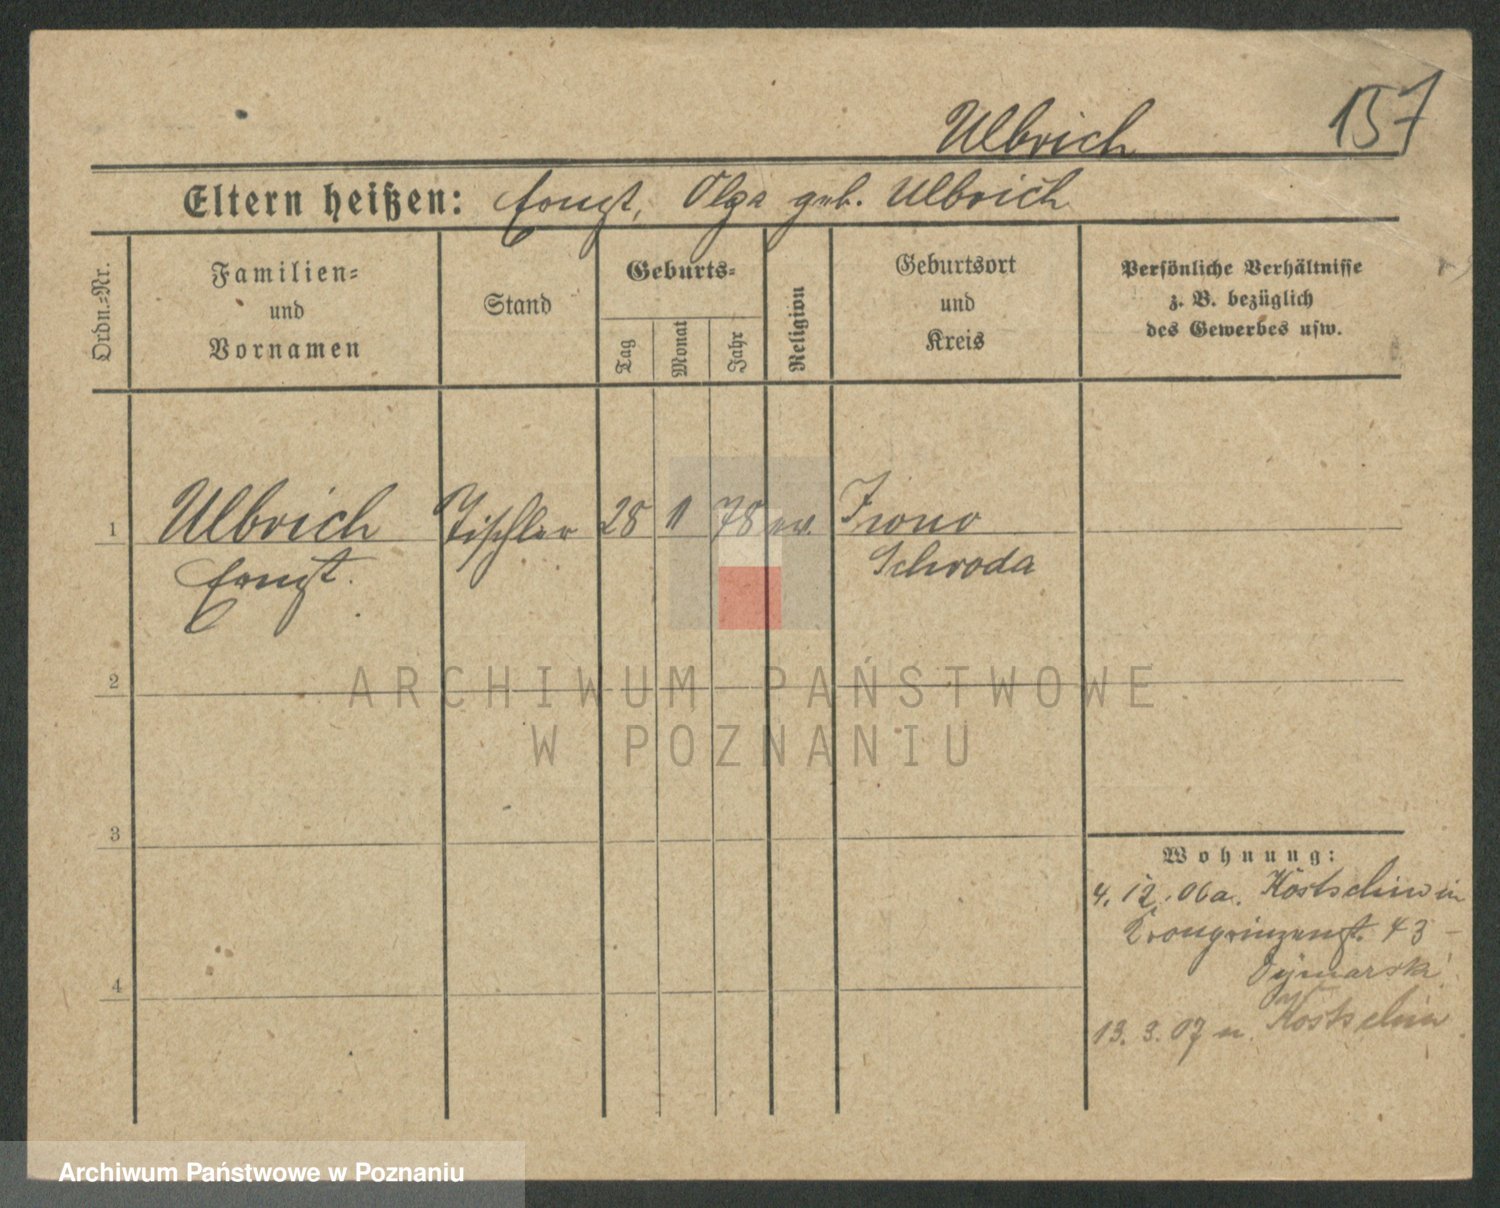 Ulbrich 157
Eltern heißen: Ernst, Olga geb. Ulbrich
Ordn.-Nr.
Familien-
und
Vornamen
Stand
Geburts-
Tag
Monat
Jahr
Religion
Geburtsort
und
Kreis
Persönliche Verhältnisse
z. B. bezüglich
des Gewerbes usw.
1 Ulbrich Tischler 28 1 78 ev.
Ernst. Schroda
2
ARCHIWUM PAŃSTWOWE
W POZNANIU
3
Wohnung:
4. 12. 06 a. Kostschin in
Kronprinzenst. 43 -
4
13. 3. 07 n. Kostschin
Archiwum Państwowe w Poznaniu